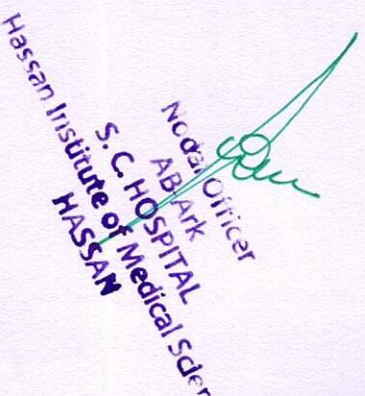 Nodal Officer
ABArk
S. C. HOSPITAL
Hassan Institute of Medical Scien
HASSAN